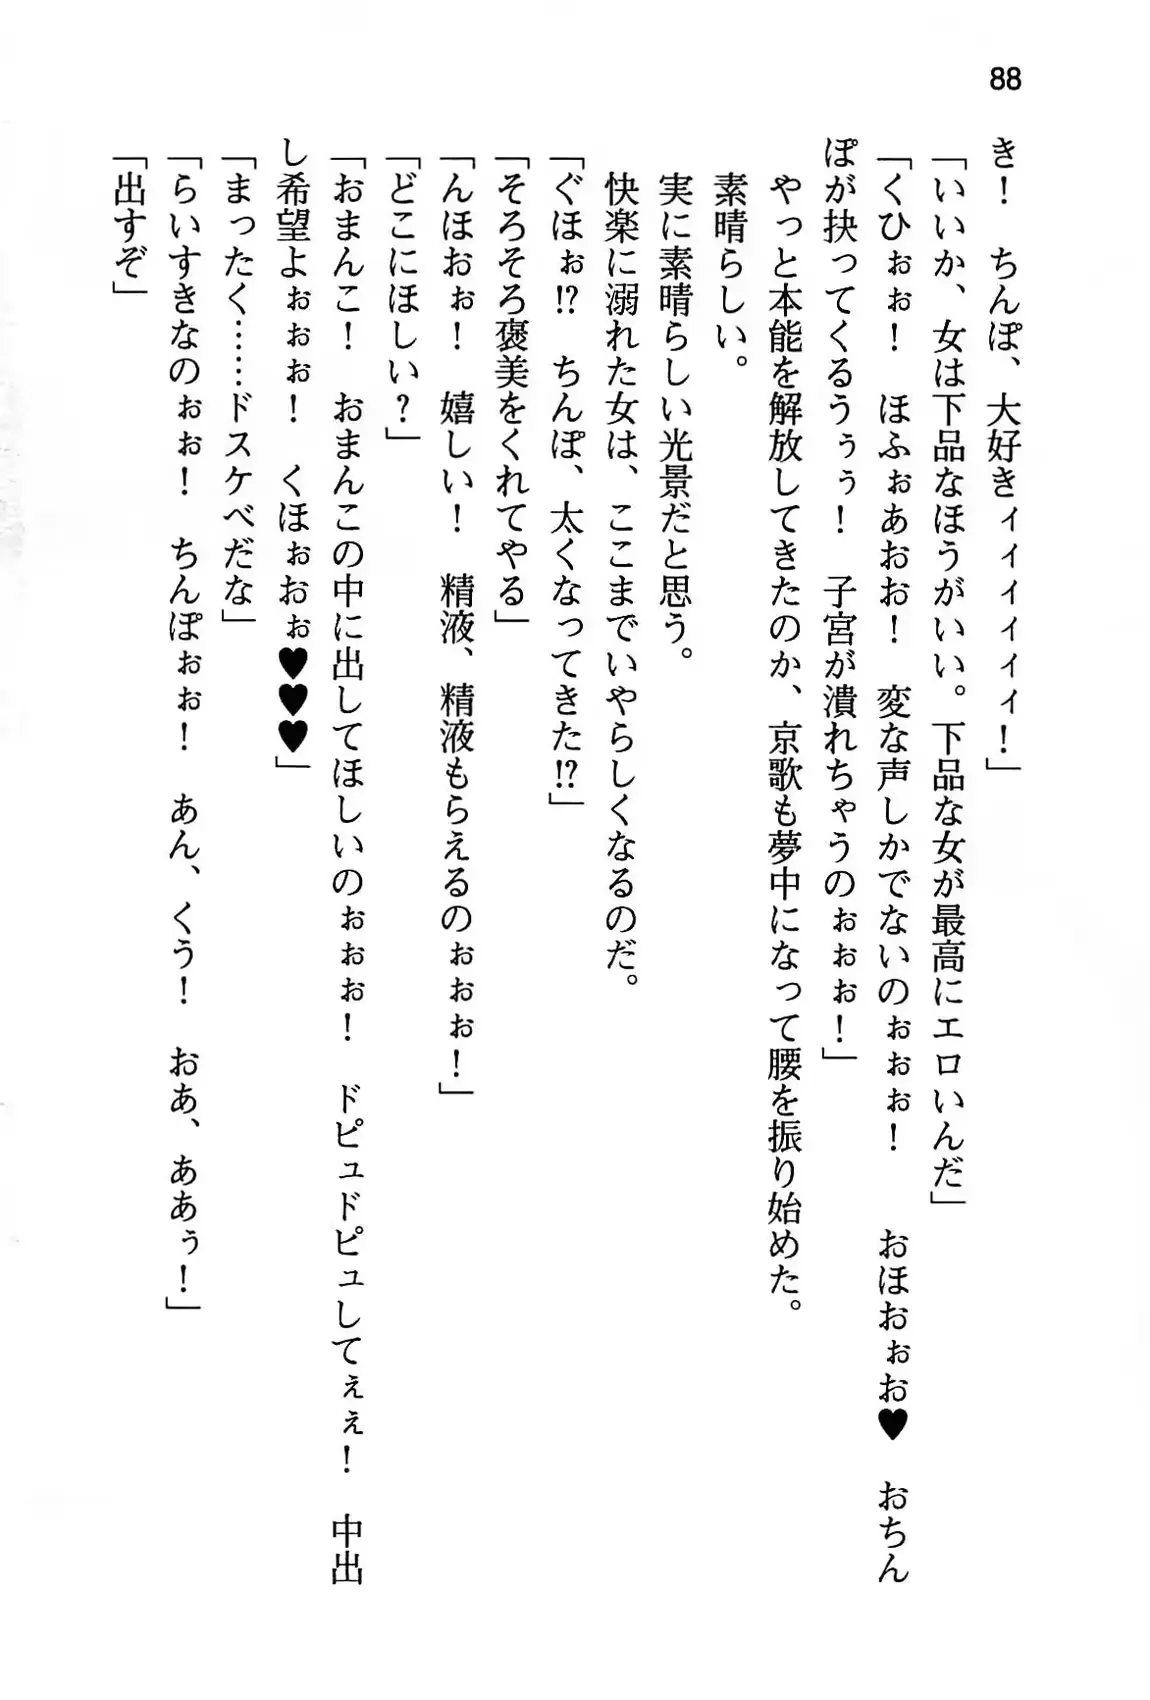 88
き！　ちんぽ、大好きィィィィィ！」
「いいか、女は下品なほうがいい。下品な女が最高にエロいんだ」
「くひぉぉ！　ほふぉあおお！　変な声しかでないのぉぉぉ！　おほおぉお♥　おちん
ぽが抉ってくるうぅぅ！　子宮が潰れちゃうのぉぉぉ！」
　やっと本能を解放してきたのか、京歌も夢中になって腰を振り始めた。
　素晴らしい。
　実に素晴らしい光景だと思う。
　快楽に溺れた女は、ここまでいやらしくなるのだ。
「ぐほぉ!?　ちんぽ、太くなってきた!?」
「そろそろ褒美をくれてやる」
「んほおぉ！　嬉しい！　精液、精液もらえるのぉぉぉ！」
「どこにほしい？」
「おまんこ！　おまんこの中に出してほしいのぉぉぉ！　ドピュドピュしてぇぇ！　中出
し希望よぉぉぉ！　くほぉおぉ♥♥♥」
「まったく……ドスケベだな」
「らいすきなのぉぉ！　ちんぽぉぉ！　あん、くう！　おあ、ああぅ！」
「出すぞ」